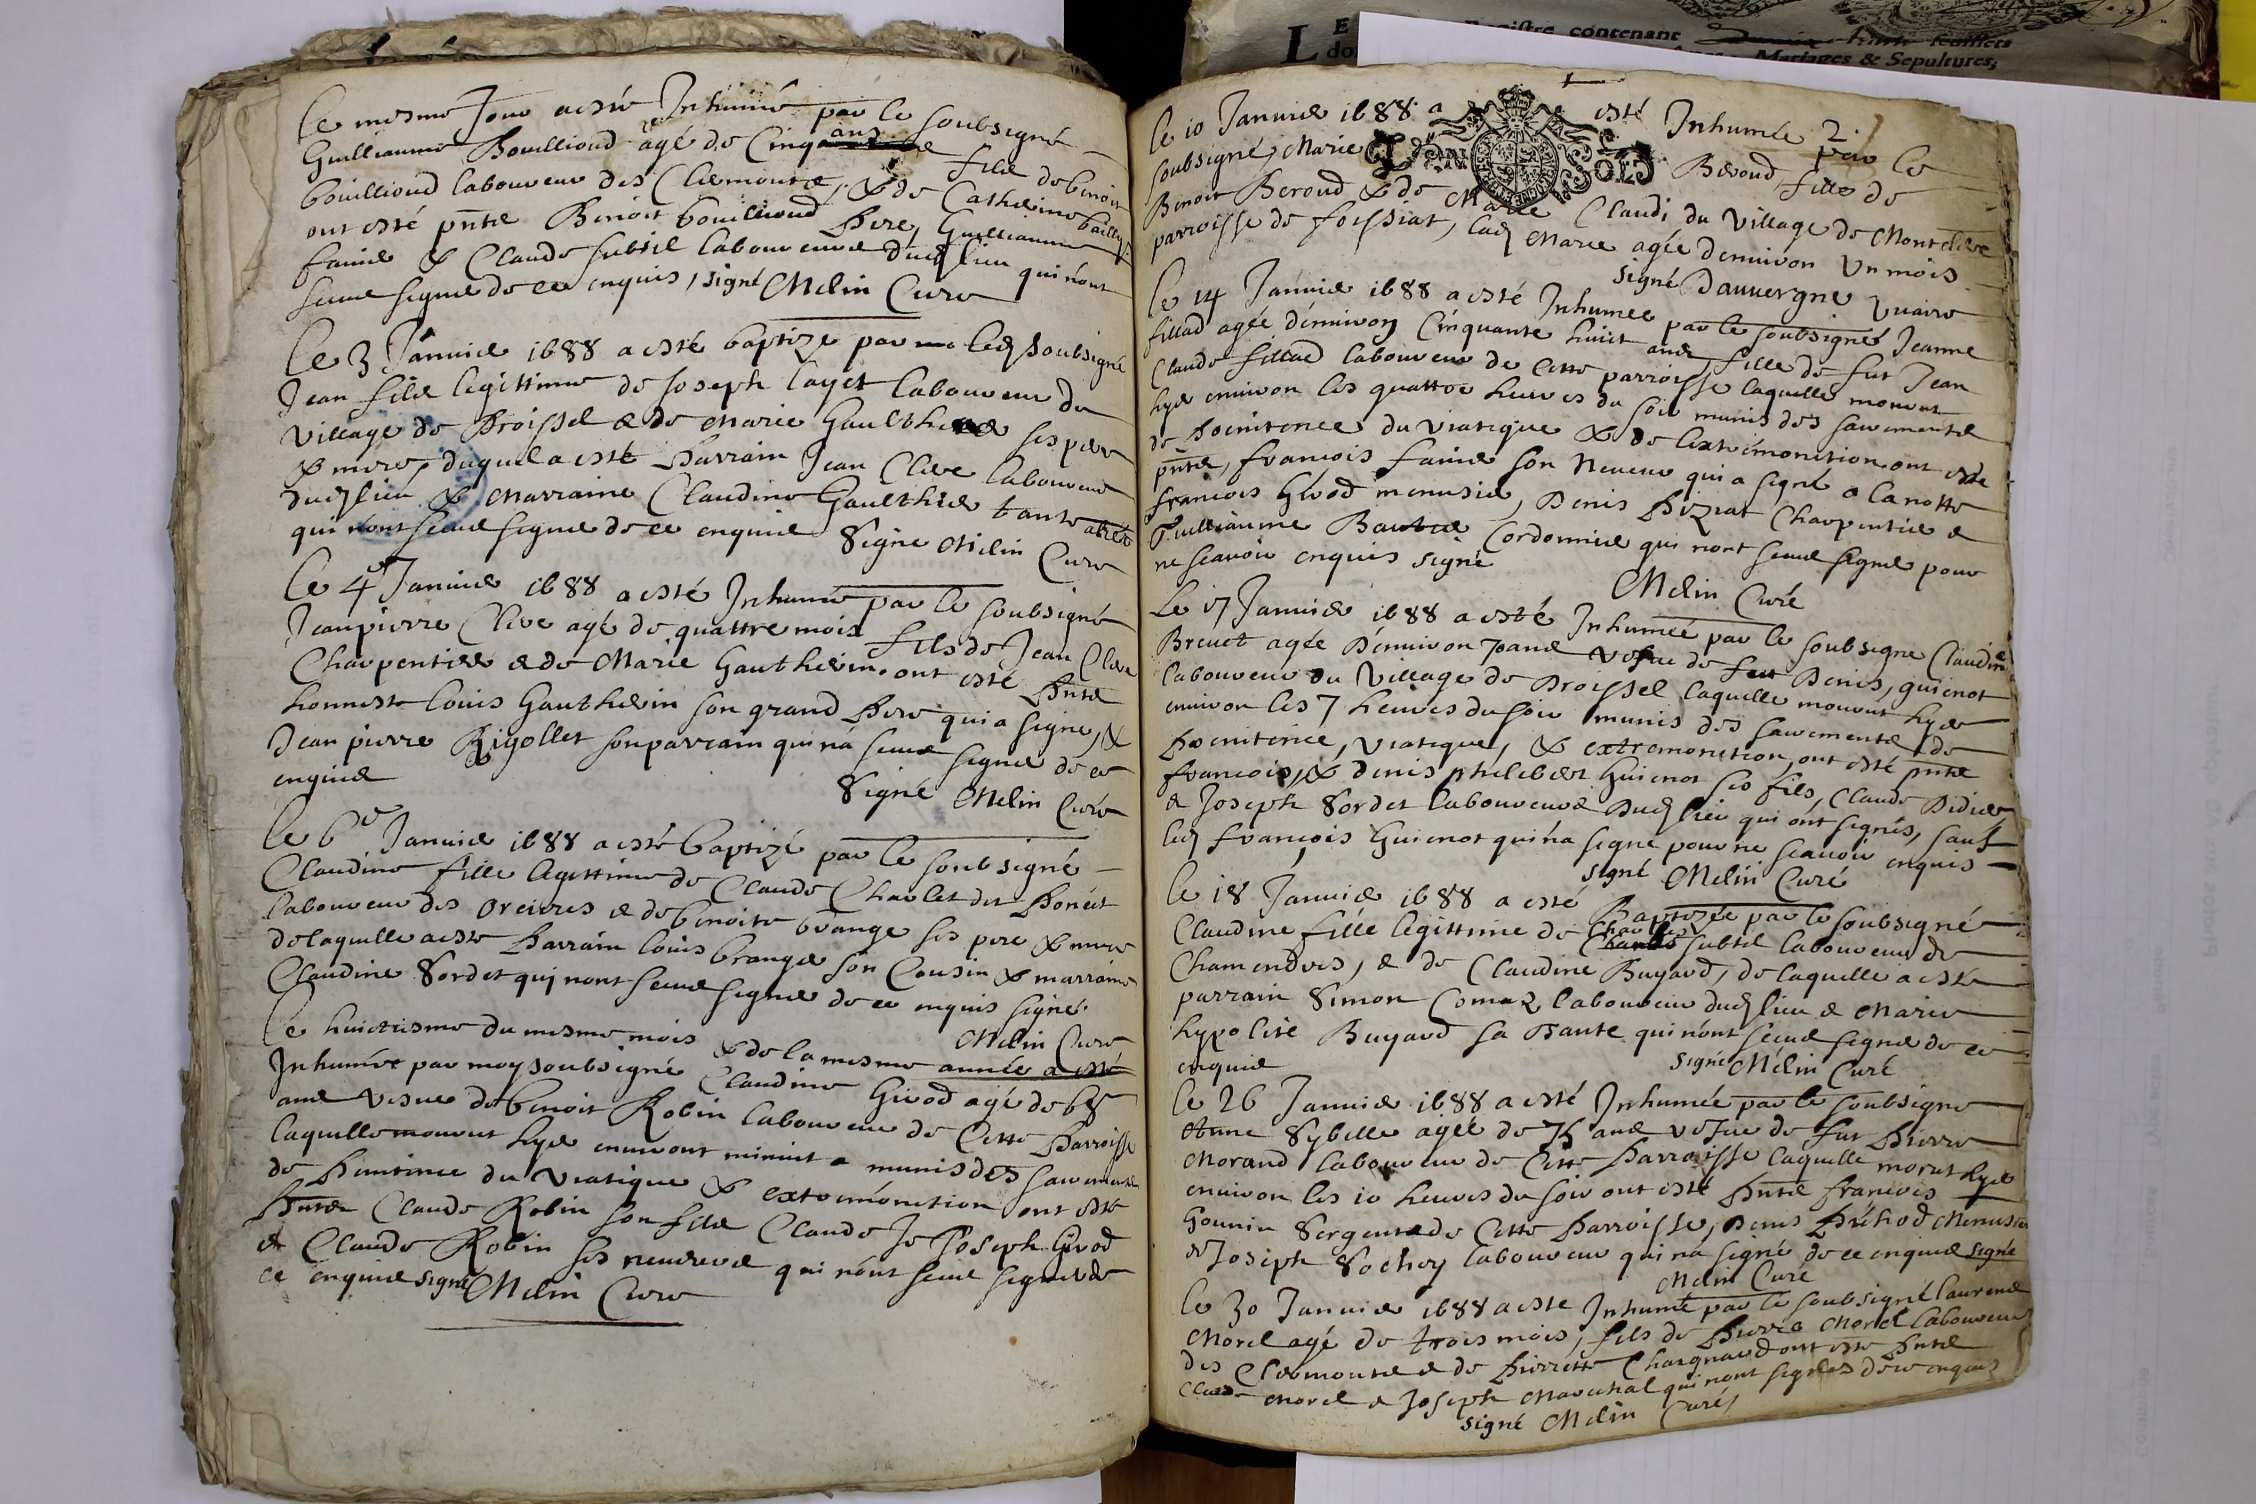 Le mesme Jour a esté Inhumé par le soubsigné
Guilliaume Bouillioud agé de Cinq ans fils de benoit
bouillioud laboureur des Clermonts, & de Catherine bailly
ont esté pñts Benoit bouillioud Pere, Guilliaume
faivre & Claude subtil laboureurs dud lieu qui n'ont
sceus signer de ce enquis, signé Melin Curé
Le 3 Janvier 1688 a esté baptizé par led soubsigné
Jean fils legittime de Joseph layet laboureur du
village de Proissel & de Marie Gaulthier ses pere
& mere, duquel a esté Parrain Jean Clere laboureur
dud lieu & Marraine Claudine Gaulthier tante
qui n'ont sceus signer de ce enquis Signé Melin Curé
Le 4e Janvier 1688 a esté Inhumé par le soubsigné
Jean pierre Clere agé de quattre mois fils de Jean Clere
Charpentier & de Marie Gautherin. ont esté Pñts
honneste louis Gautherin son grand Pere qui a signé, &
Jean pierre Rigollet son parrain qui n'a sceus signer de ce
enquis Signé Melin Curé
Le 6e Janvier 1688 a esté baptizé par le soubsigné
Claudine fille legittime de Claude Charlet dit Poncet
laboureur des Orcieres & de benoite brange ses pere & mere
de laquelle a esté Parrain louis branger son Cousin & marraine
Claudine Sordet qui n'ont sceus signer de ce enquis signé
Melin Curé
Le huictiesme du mesme mois & de la mesme année a esté
Inhumée par moy soubsigné Claudine Girod agé de 68
ans vesve de benoit Robin laboureur de Cette Parroisse
laquelle mourut hyer environt minuit munis des sacements
de Penitence du viatique & extremonction ont esté
Pñts Claude Robin son fils Claude & Joseph Girod
& Claude Robin ses nepveux qui n'ont sceus signer de
ce enquis signé Melin Curé
Le 10 Janvier 1688 a esté Inhumée par le
2
soubsigné, Marie Beroud, fille de
Benoit Beroud & de Marie Claudi du village de Mont
parroisse de foissiat, lad Marie agée d'environ Un mois
signé Dauvergne vicaire
Le 14 Janvier 1688 a esté Inhumée par le soubsigné Jeanne
fillad agée d'environ Cinquante huict ans, fille de fut Jean
Claude fillad laboureur de Cette parroisse laquelle mourut
hyer environ les quattre heures du soir munis des sacements
de Poenitence du viatique & de l'extremonction ont esté
pñts, francois faivre son Neveu qui a signé a la notte
francois Girod menusier, Denis Piziat Charpentier &
Guilliaume Cordonnier qui n'ont sceus signer pour
ne scavoir enquis signé Melin Curé
Le 17 Janvier 1688 a esté Inhumée par le soubsigné Claudine
Brevet agée D'environ 70 ans vesve de feu Denis, guienot
laboureur du village de Proissel laquelle mourut hyer
environ les 7 heures du soir munis des sacements de
Poenitence, viatique, & extremonction, ont esté pñts
francois, & denis philebert Guienot ses fils, Claude Didier
& Joseph Sordet laboureurs Dud lieu qui ont signés, sauf
led francois Guienot qui n'a signé pour ne scavoir enquis
signé Melin Curé
Le 18 Janvier 1688 a esté Baptizée par le soubsigné
Claudine fille legittime de Charles subtil laboureur de
Chamendres, & de Claudine Bugaud, de laquelle a esté
parrain Simon Comaz laboureur dud lieu & Marie
hypolite Bugaud sa Tante qui n'ont sceus signer de ce
enquis signé Melin Curé
Le 26 Janvier 1688 a esté Inhumée par le soubsigné
Anne Sybille agée de 75 ans vesve de fut Pierre
Morand laboureur de Cette Parroisse laquelle morut hyer
environ les 10 heures du soir ont esté Pñts francois
Gounin Sergent de Cette Parroisse, Denis Menusier
& Joseph Sochey laboureur qui n'a signé de ce enquis signé
Melin Curé
Le 30 Janvier 1688 a esté Inhumé par le soubsigné laurens
Morel agé de trois mois, fils de Pierre Morel laboureur
des Clermonts & de Pierrette ont esté Pñts
Claude Morel & Joseph Marechal qui n'ont signés de ce enquis
signé Melin Curé
LE Registre contenant feuillets
do Mariages & Sepultures,